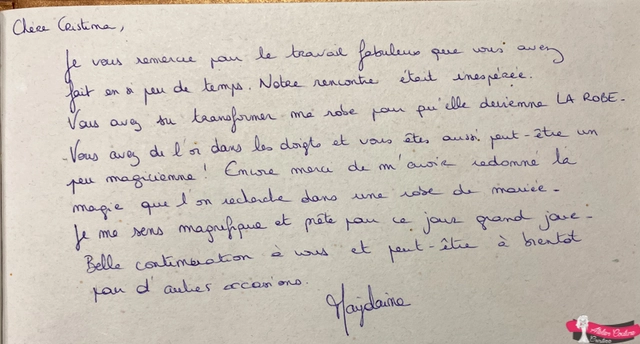 Chère Cristina,
Je vous remercie pour le travail fabuleux que vous avez
fait en si peu de temps. Notre rencontre était inespérée.
Vous avez su transformer ma robe pour qu'elle devienne LA ROBE.
Vous avez de l'or dans les doigts et vous êtes aussi peut-être un
peu magicienne ! Encore merci de m'avoir redonné la
magie que l'on recherche dans une robe de mariée.
Je me sens magnifique et prête pour ce jour grand jour.
Belle continuation à vous et peut-être à bientôt
pour d'autres occasions.
Atelier Couture